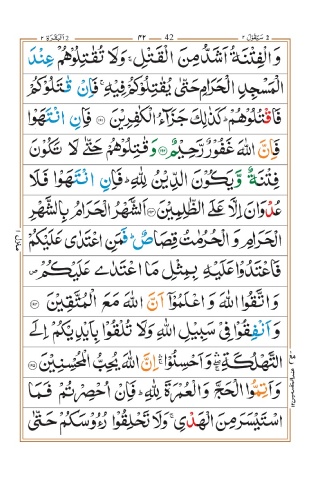 البقرة ٢ ٤٢ 42 سيقول ٢
وَالْفِتْنَةُ اَشَدُّ مِنَ الْقَتْلِ ۚ وَلَا تُقٰتِلُوْهُمْ عِنْدَ
الْمَسْجِدِ الْحَرَامِ حَتّٰى يُقٰتِلُوْكُمْ فِيْهِ ۚ فَاِنْ قٰتَلُوْكُمْ
فَاقْتُلُوْهُمْ ؕ كَذٰلِكَ جَزَآءُ الْكٰفِرِيْنَ ﴿۱۹۱﴾ فَاِنِ انْتَهَوْا
فَاِنَّ اللّٰهَ غَفُوْرٌ رَّحِيْمٌ ﴿۱۹۲﴾ وَقٰتِلُوْهُمْ حَتّٰى لَا تَكُوْنَ
فِتْنَةٌ وَّيَكُوْنَ الدِّيْنُ لِلّٰهِ ؕ فَاِنِ انْتَهَوْا فَلَا
عُدْوَانَ اِلَّا عَلَى الظّٰلِمِيْنَ ﴿۱۹۳﴾ اَلشَّهْرُ الْحَرَامُ بِالشَّهْرِ
الْحَرَامِ وَالْحُرُمٰتُ قِصَاصٌ ؕ فَمَنِ اعْتَدٰى عَلَيْكُمْ
فَاعْتَدُوْا عَلَيْهِ بِمِثْلِ مَا اعْتَدٰى عَلَيْكُمْ ۪
وَاتَّقُوا اللّٰهَ وَاعْلَمُوْۤا اَنَّ اللّٰهَ مَعَ الْمُتَّقِيْنَ ﴿۱۹۴﴾
وَاَنْفِقُوْا فِيْ سَبِيْلِ اللّٰهِ وَلَا تُلْقُوْا بِاَيْدِيْكُمْ اِلَى
التَّهْلُكَةِ ۛۚ وَاَحْسِنُوْا ۛۚ اِنَّ اللّٰهَ يُحِبُّ الْمُحْسِنِيْنَ ﴿۱۹۵﴾
وَاَتِمُّوا الْحَجَّ وَالْعُمْرَةَ لِلّٰهِ ؕ فَاِنْ اُحْصِرْتُمْ فَمَا
اسْتَيْسَرَ مِنَ الْهَدْيِ ۚ وَلَا تَحْلِقُوْا رُءُوْسَكُمْ حَتّٰى